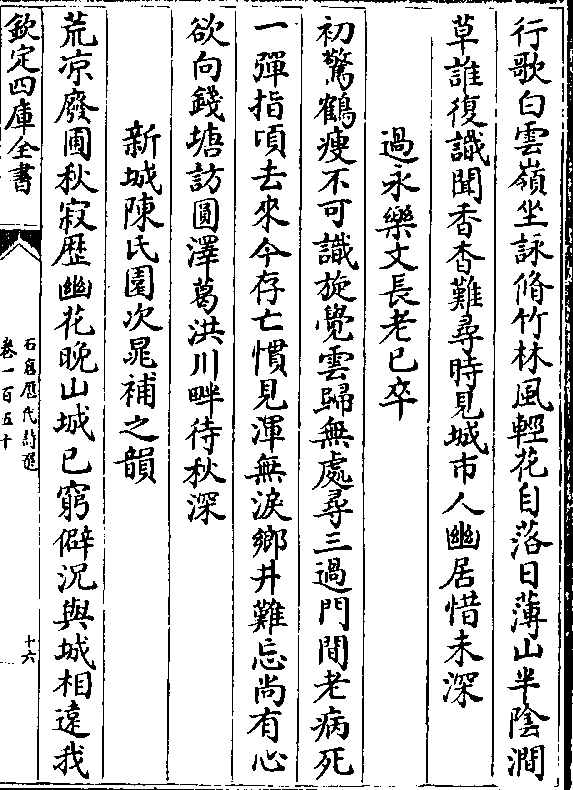 行歌白雲嶺坐詠脩竹林風輕花自落日薄山半陰澗
草誰復識聞香杳難尋時見城市人幽居惜未深
過永樂文長老已卒
初驚鶴瘦不可識旋覺雲歸無處尋三過門間老病死
一彈指頃去來今存亡慣見渾無淚鄉井難忘尚有心
欲向錢塘訪圓澤葛洪川畔待秋深
新城陳氏園次晁補之韻
荒凉廢圃秋寂歴幽花晚山城已窮僻況與城相遠我
欽定四庫全書
石倉歴代詩選
卷一百五十
十六